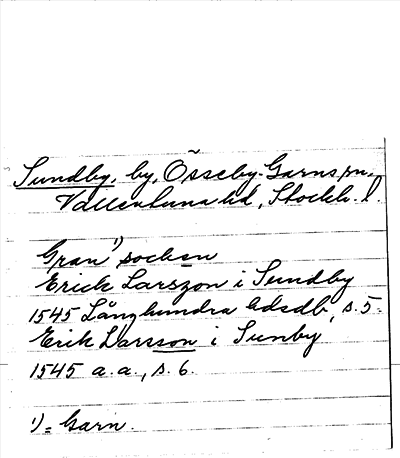 Sundby, by, Össeby-Garns sn,
Vallentuna hd, Stockh. l.
Gran¹) socken
Erick Larszon i Sundby
1545 Långhundra hdsdb, s. 5.
Erik Larsson i Sunby
1545 a.a., s. 6.
¹) = Garn.